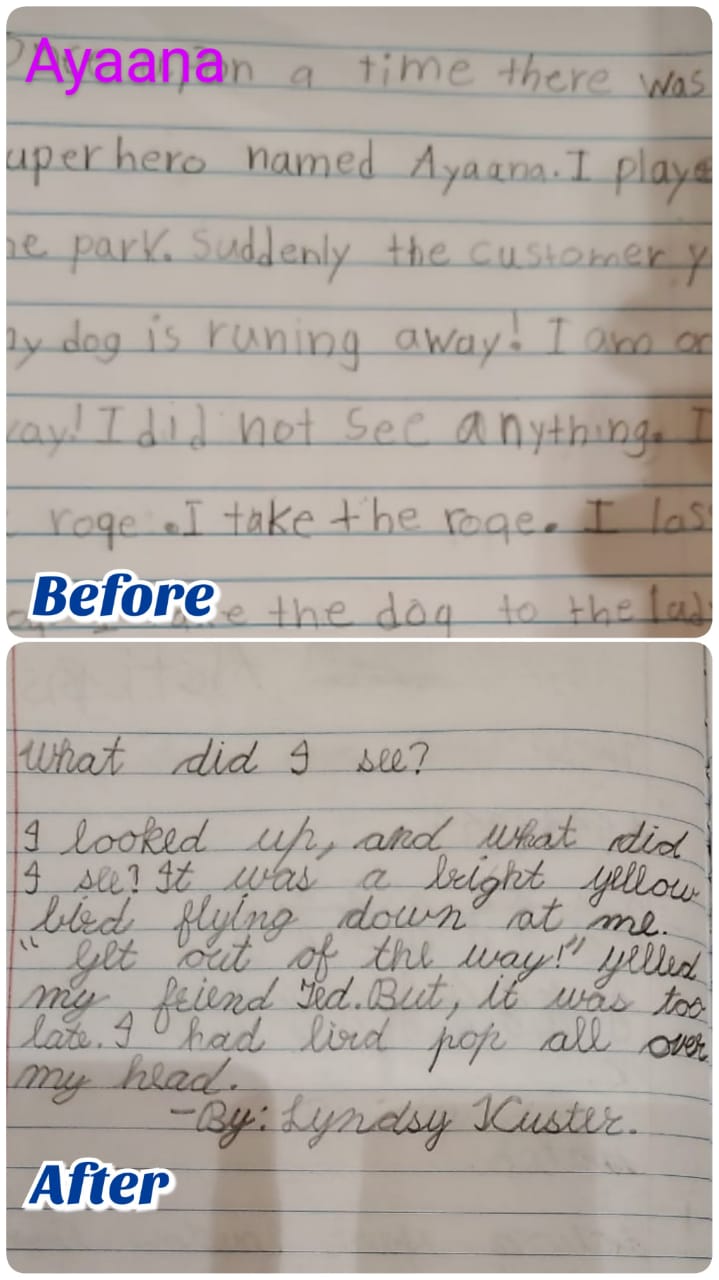 Ayaana
on a time there was
uperhero named Ayaana. I playe
he park. Suddenly the customer y
my dog is runing away! I am on
ay! I did not see anything. I
roqe. I take the roqe. I las
the dog to the lady
Before
What did I see?
I looked up, and what did
I see? It was a bright yellow
bird flying down at me.
"Get out of the way!" yelled
my friend Ted. But, it was too
late. I had bird pop all over
my head.
-By: Lyndsy Kuster.
After